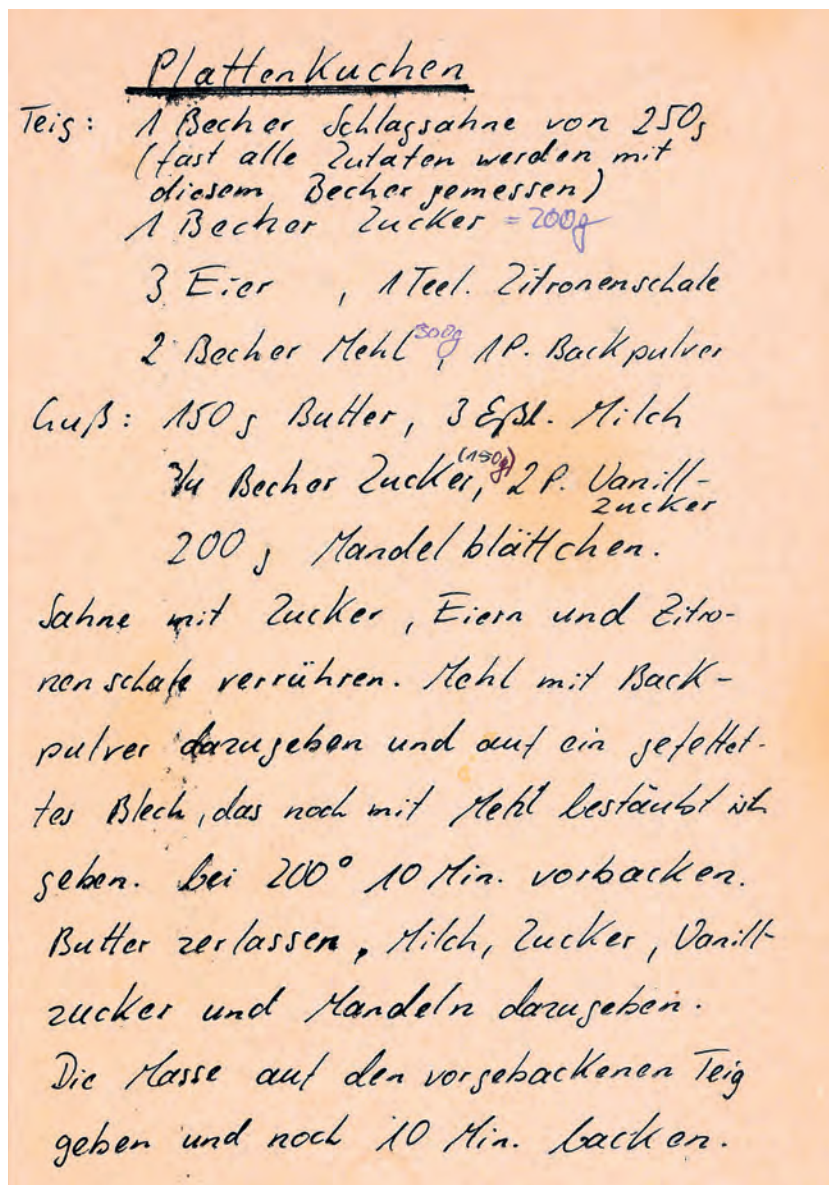 Plattenkuchen
Teig: 1 Becher Schlagsahne von 250g
(fast alle Zutaten werden mit
diesem Becher gemessen)
1 Becher Zucker = 200g
3 Eier , 1 Teel. Zitronenschale
2 Becher Mehl 300g, 1 P. Backpulver
Guß: 150 g Butter, 3 Eßl. Milch
3/4 Becher Zucker, (150g) 2 P. Vanill-
zucker
200 g Mandelblättchen.
Sahne mit Zucker, Eiern und Zitro-
nenschale verrühren. Mehl mit Back-
pulver dazugeben und auf ein gefettet-
tes Blech, das noch mit Mehl bestäubt ist
geben. bei 200° 10 Min. vorbacken.
Butter zerlassen, Milch, Zucker, Vanill-
zucker und Mandeln dazugeben.
Die Masse auf den vorgebackenen Teig
geben und noch 10 Min. backen.